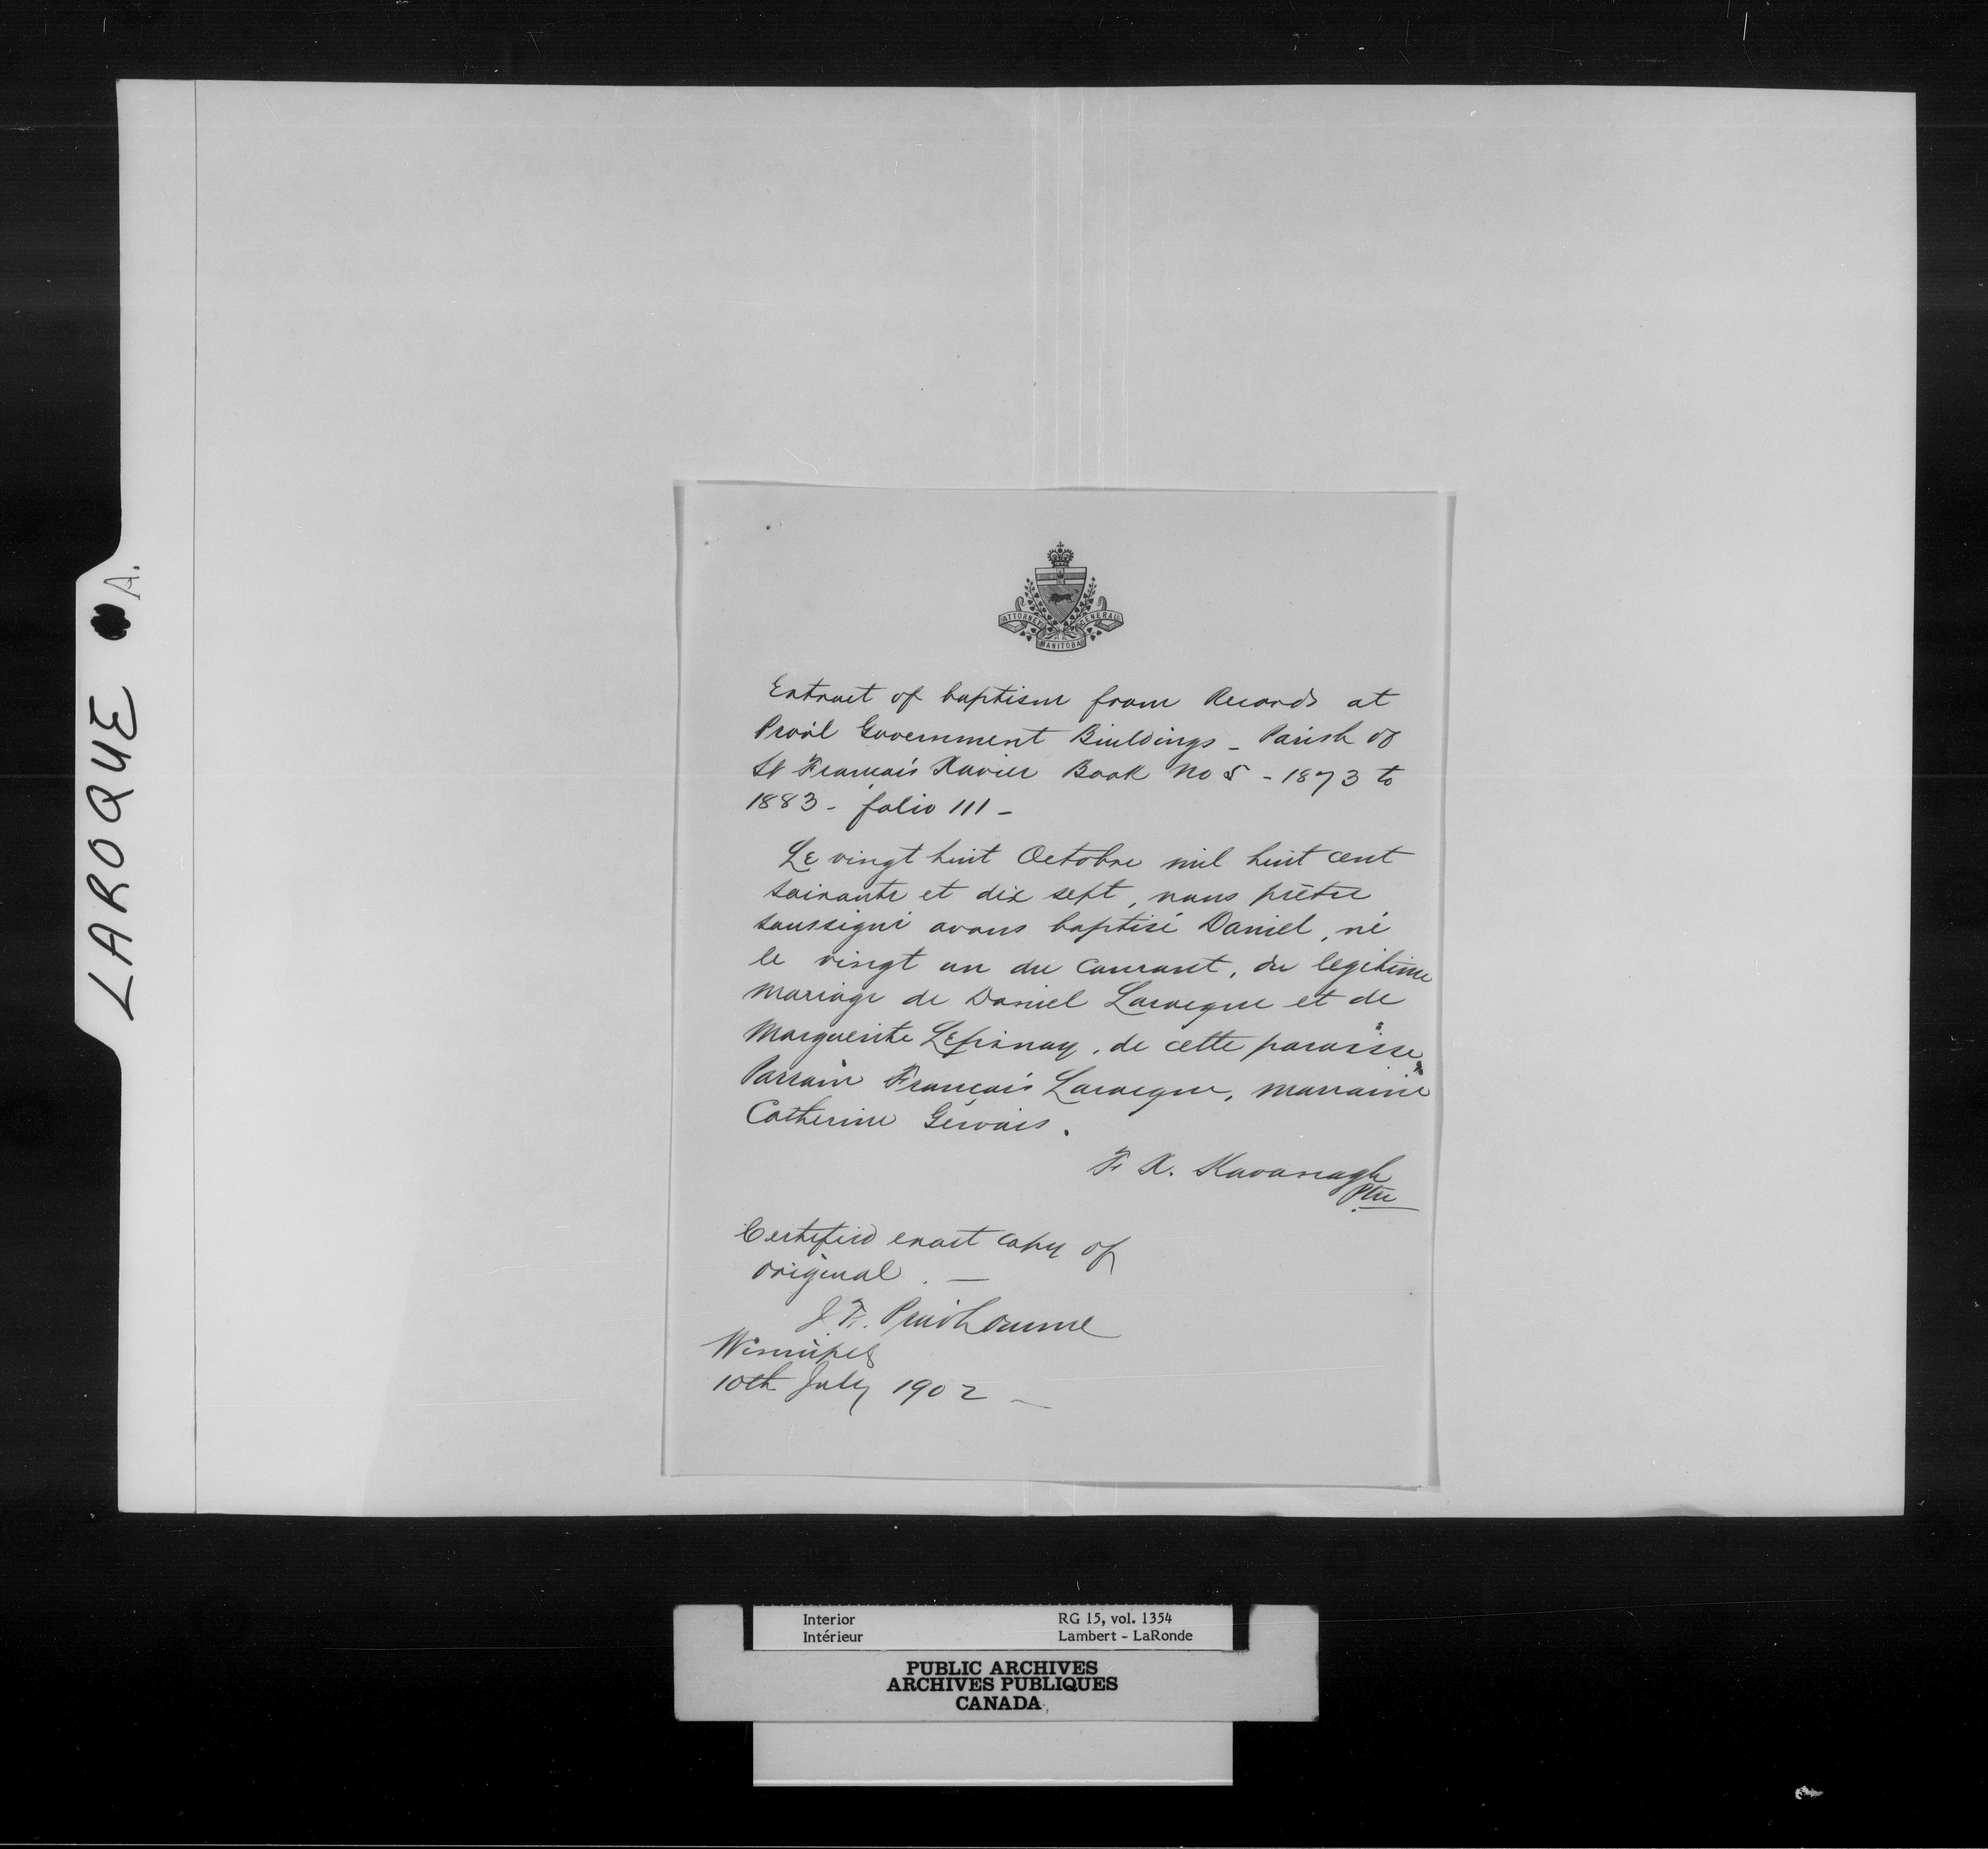 LAROQUE A.
ATTORNEY GENERAL
MANITOBA
Extract of baptism from Records at
Prov'l Government Buildings - Parish of
St François Xavier Book No 5 - 1873 to
1883 - folio 111 -
Le vingt huit Octobre mil huit cent
soixante et dix sept, nous prêtre
soussigné avons baptisé Daniel, né
le vingt un du courant, du legitime
mariage de Daniel Larocque et de
Marguerite Lépinay, de cette paroisse
Parrain François Larocque, marraine
Catherine Gérvais.
F. X. Kavanagh
Ptre
Certified exact copy of
original. —
J. F. Prudhomme
Winnipeg
10th July 1902 —
Interior RG 15, vol. 1354
Intérieur Lambert - LaRonde
PUBLIC ARCHIVES
ARCHIVES PUBLIQUES
CANADA